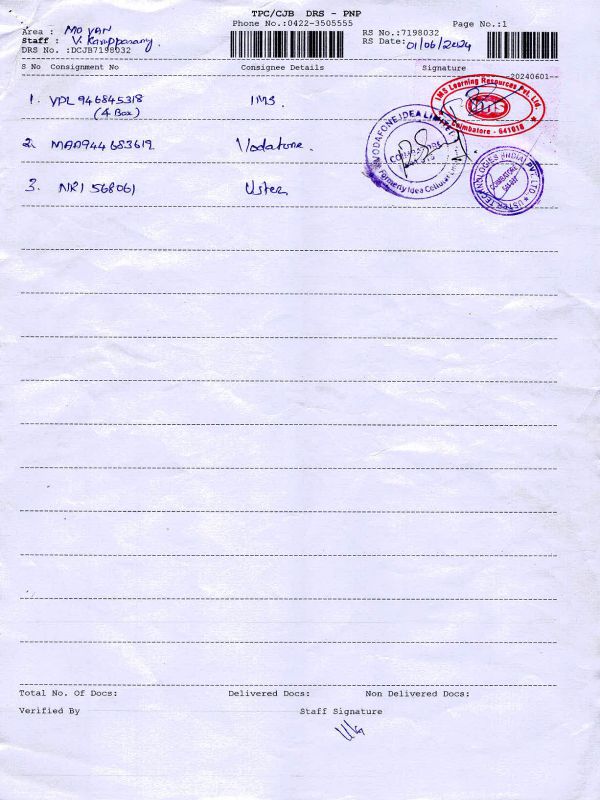 TPC/CJB DRS - PNP
Phone No.:0422-3505555 Page No.:1
Area : MO VAN
RS No.:7198032
Staff : V. Karuppasamy.
RS Date: 01/06/2024
DRS No. :DCJB7198032
S No Consignment No Consignee Details Signature
--20240601--
1. VPL 946845318 IMS.
(4 Box)
IMS Learning Resources Pvt. Ltd.
IMS
Coimbatore - 641018
2. MAA944683619 Vodafone.
VODAFONE IDEA LIMITED
COIMBATORE
(Formerly Idea Cellular Limited)
3. NRI 568061 Uster
USTER TECHNOLOGIES (INDIA) PVT. LTD.
COIMBATORE
Total No. Of Docs: Delivered Docs: Non Delivered Docs:
Verified By Staff Signature